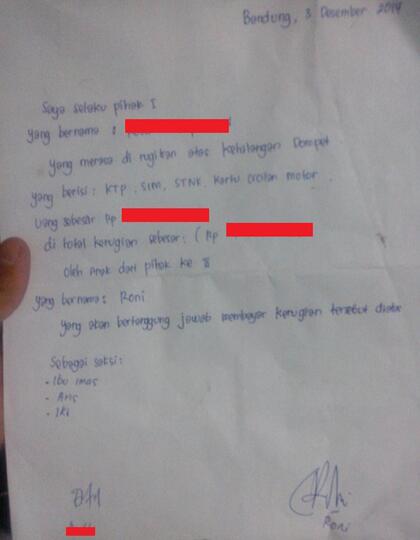 Bandung, 3 Desember 2014
Saya selaku pihak I
yang bernama :
yang merasa di rugikan atas kehilangan Dompet
yang berisi : KTP, SIM, STNK, Kartu cicilan motor.
Uang sebesar Rp
di total kerugian sebesar : ( Rp
oleh Anak dari pihak ke II
yang bernama : Roni
yang akan bertanggung jawab membayar kerugian tersebut diatas
Sebagai saksi :
- Ibu Imas
- Aris
- Iki
Roni